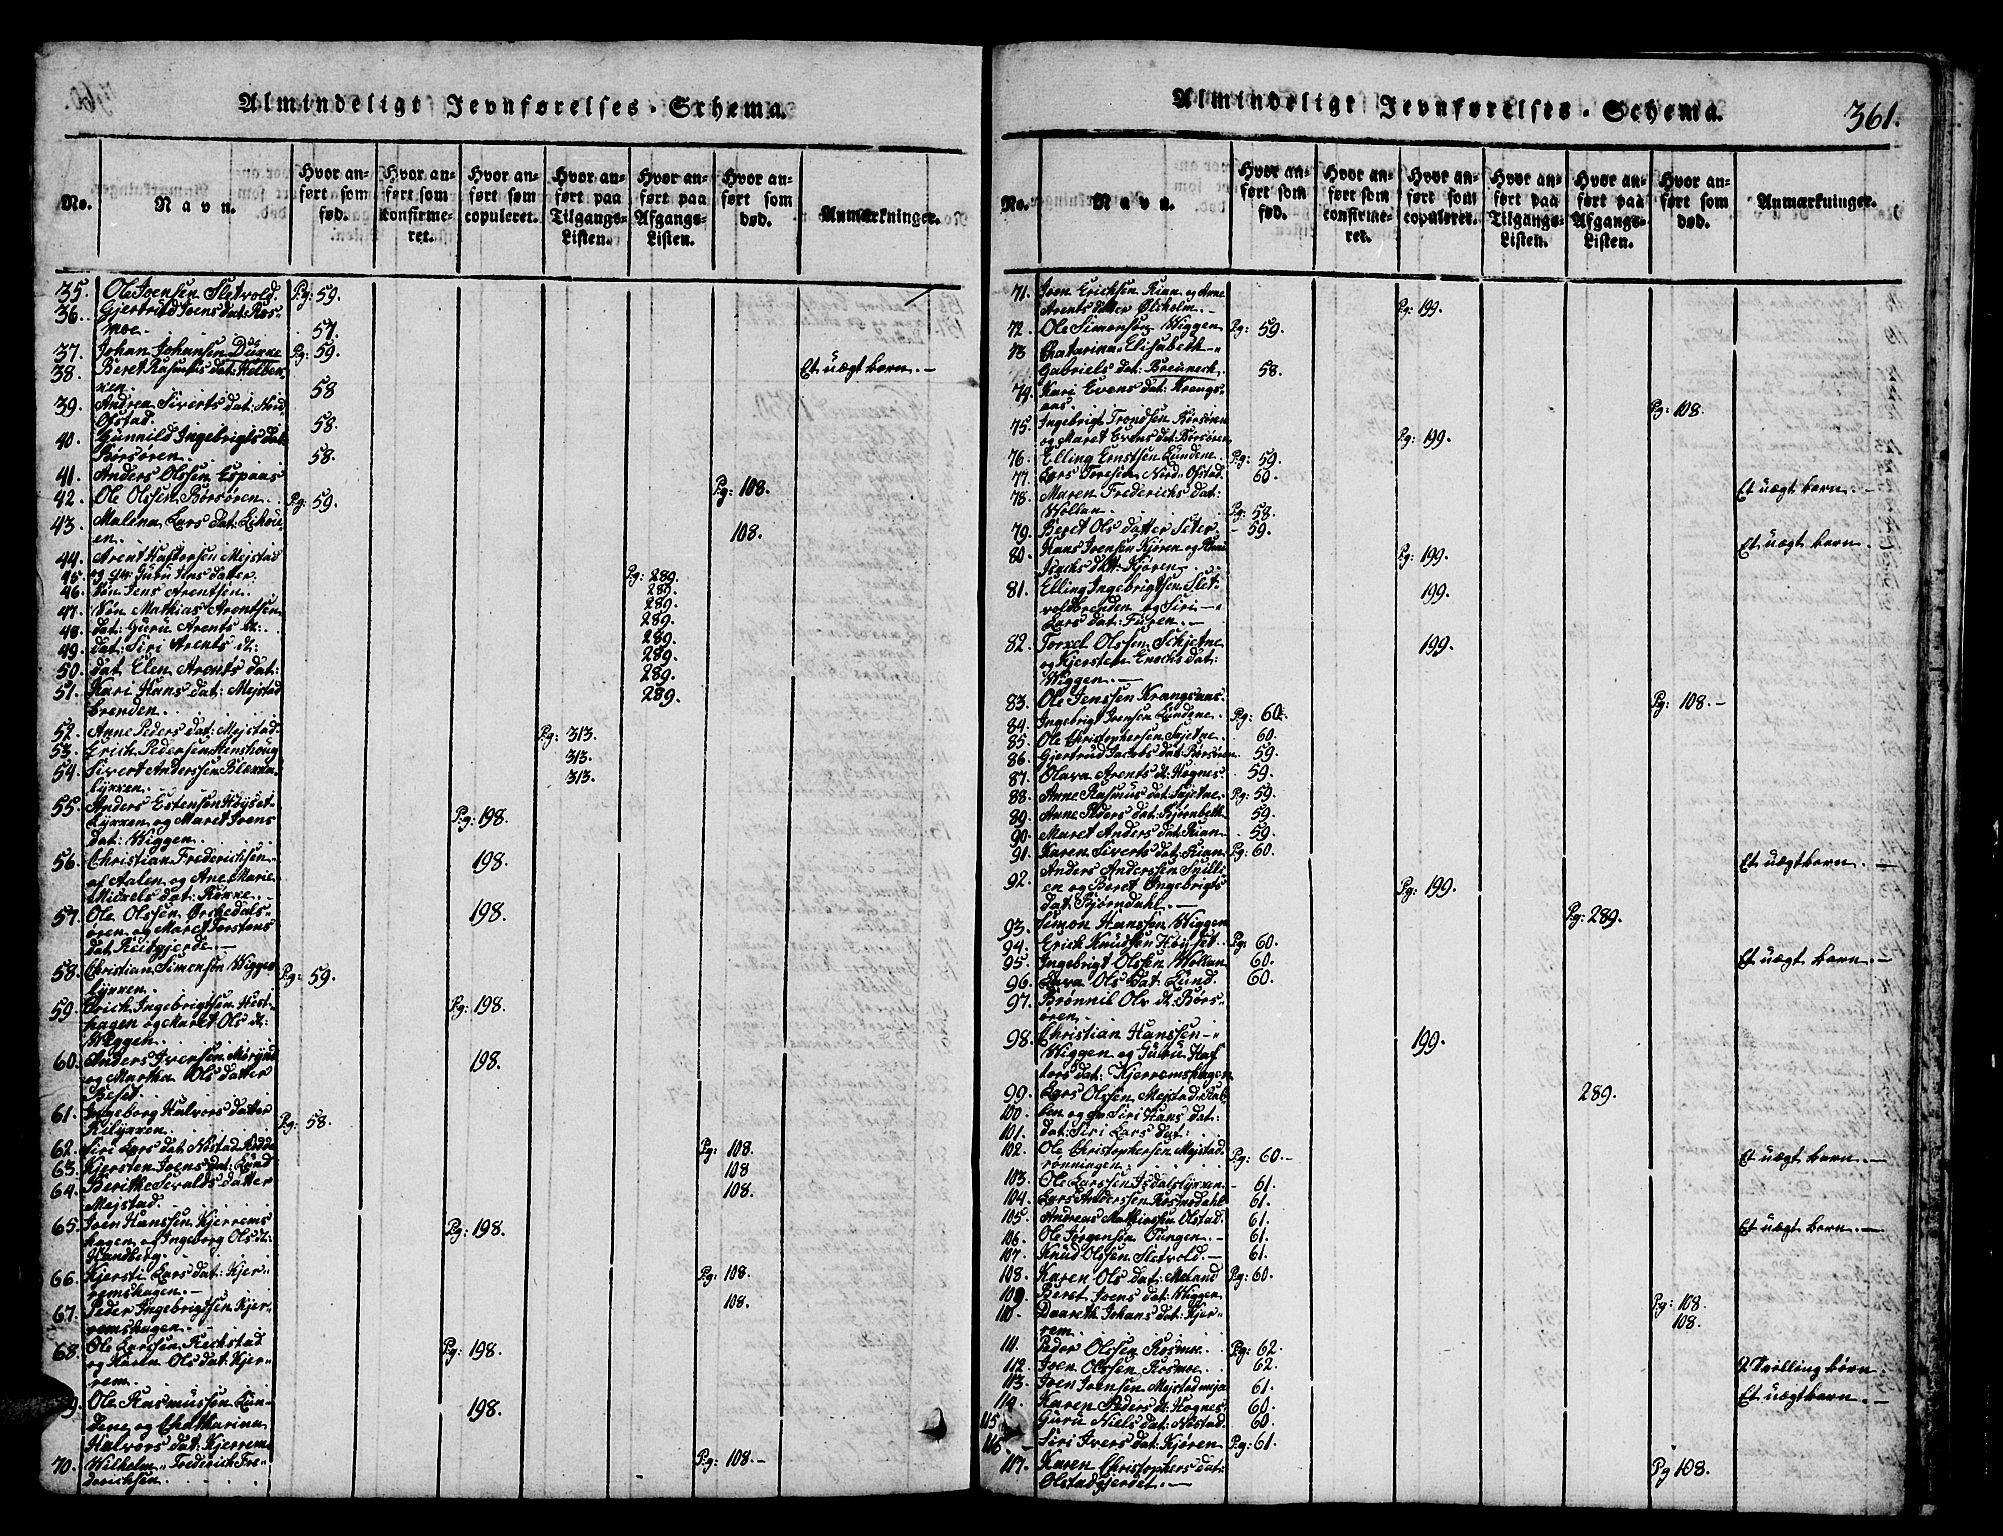 Almindeligt Jevnførelses-Schema.
No.
Navn.
Hvor anført som fød.
Hvor anført som Konfirmeret.
Hvor anført som copuleret.
Hvor anført paa Tilgangs-Listen.
Hvor anført paa Afgangs-Listen.
Hvor anført som død.
Anmærkninger.
35. Ole Joensen Sletvold. Pg: 59.
36. Gjertrud Joens dat: Ros-
moe. 57.
37. Johan Johansen Duxxe Pg: 59.
38. Beret Rasmus dat: Helben-
nen. 58 Et uægt barn.
39. Andrea Siverts dat: Nord
Ofstad. 58.
40. Gunnild Ingebrigts dat
Børsøren. 58.
41. Anders Olssen Espaas Pg: 108.
42. Ole Olssen Børsøren. Pg: 59.
43. Malena Lars dat:
en. 108.
44. Arent Haftorsen Mejstad
45. og Guru Ens datter. Pg: 289.
46. Søn Jens Arentsen. 289.
47. Søn Mathias Arentsen 289.
48. dat: Guru Arents d: 289.
49. dat: Siri Arents d: 289.
50. dat Elen Arents dat: 289.
51. Kari Hans dat: Mejstad 289.
brenden. 289.
52. Anne Peders dat: Mejstad Pg: 313.
53. Erich Pedersen Henshoug 313.
54. Sivert Anderssen Blexxa- 313.
lyxxen.
55. Anders Estensen Høyset-
lyxxen og Maret Joens Pg: 198.
dat: Wiggen.
56. Christian Frederichsen 198.
af Aalen og Ane Marie
Mixxels dat: Røxxe.
57. Ole Olssen Orkedals- 198.
øren og Maret Torstens
dat Reitgjerde.
58. Christian Simonsøn Wiggen Pg: 59.
lyxxen.
59. Erich Ingebrigtsen Hest- Pg: 198.
hagen og Maret Ols d:
Wiggen.
60. Anders Iversen 198.
og Martha Ols datter
Beset.
61. Ingeborg Halvors datter Pg: 58.
Kilyxxen.
62. Siri Lars dat Nostad Pg: 108.
63. Kjersten Joens dat: Lund 108
64. Berithe Sevalds datter 108.
Mejstad.
65. Joen Hanssen Kjerrems Pg: 198.
hagen og Ingeborg Ols d:
Hundberg.
66. Kjersti Lars dat: Kjer- Pg: 108.
remshagen.
67. Peder Ingebrigtsen Kjer- 108.
remshagen.
68. Ole Larssen Reckstad Pg: 198.
og Karen Ols dat: Kjer-
rem.
9. Ole Rasmussen Lun- 198.
dene og Chatharina
Halvors dat: Kjerrem
70. Wilhelm Frederich Fre- Pg: 108.
derichsen.
Almindeligt Jevnførelses-Schema.
361.
No.
Navn.
Hvor anført som fød.
Hvor anført som confirmeret.
Hvor anført som copuleret.
Hvor anført paa Tilgangs-Listen.
Hvor anført paa Afgangs-Listen.
Hvor anført som død.
Anmærkninger.
71. Joen Erichsen Rian og Anne
Arents datter Øisholm. Pg: 199.
72. Ole Simonsøn Wiggen Pg: 59.
73 Chatarina Elisabeth
Gabriels dat: Breuneck. 58.
74. Kari Evens dat: Krangs-
aas. Pg: 108.
75. Ingebrigt Trondsen Børsøren
og Maret Evens dat: Børsøren Pg: 199.
76. Elling Ernstsen Lundene. Pg: 59.
77. Lars Toresen Nord Ofstad. 60.
78. Maren Frederichs dat: Et uægt barn.
Wollan. Pg: 58.
79. Beret Ols datter Seter 59.
80. Hans Jensen Kjøren og Pg: 199. Et uægt barn.
Isachs datt: Kjøren.
81. Elling Ingebrigtsen Slet- 199.
voldbrenden og Siri
Lars dat: Furen.
82. Torxel Olssen Schjetne 199.
og Kjersten Enochs dat:
Wiggen.
83. Ole Jenssen Krangsaas Pg: 108.
84. Ingebrigt Jensen Lundene. Pg: 60.
85. Ole Christophersen Sxjetne. 60.
86. Gjertrud Jacobs dat: Børsøren 59.
87. Olava Arents d: Hognes. 59.
88. Anne Rasmus dat: Sxjetne Pg: 59.
89. Anne Peders dat: Bjørnbeth 59.
90. Maret Anders dat Rian. 59.
91. Karen Siverts dat: Rian Pg: 60. Et uægt barn.
92. Anders Anderssen Snilli
en og Beret Ingebrigts Pg: 199.
dat Bjørndahl.
93. Simon Hanssen Wiggen Pg: 289.
94. Erich Knudsen Høyset. Pg: 60.
95. Ingebrigt Olssen Wollan 60. Et uægt barn.
96. Lava Ols dat: Lund. 60.
97. Brønnil Ols d: Børs-
øren.
98. Christian Hanssen
Wiggen og Guru Haf 199.
tors dat: Kjerremshagen
99. Lars Olssen Mejstad 289.
100. og Siri Hans dat:
101. dat: Siri Lars dat:
102. Ole Christophersen Mejstad
rønningen. Pg: 60. Et uægt barn.
103. Ole Larssen Isdalslyxxen. 61.
104. Lars Anderssen Rosmodahl 61.
105. Andreas Mathiassen Olstad. 61. Et uægt barn.
106. Ole Jørgensøn Oungen. 61.
107. Knud Olssen Sletvold. 61.
108. Karen Ols dat: Meland Pg: 60.
109. Beret Joens dat: Wiggen Pg: 108
110. Daareth Johans dat: Kjer- 108.
rem.
111. Peder Olssen Rosmoe. Pg: 62.
112. Joen Olssen Rosmoe. 62. 2 Tvilling børn.
113. Joen Joensen Mejstadmija 61. Et uægt barn.
114. Karen Peders d: Hognes. 60.
115. Guru Niels dat: Nostad. 60.
116. Siri Ivers dat: Kjøren. Pg: 61.
117. Karen Christophers dat: Pg 108.
Olstadgjerdet.